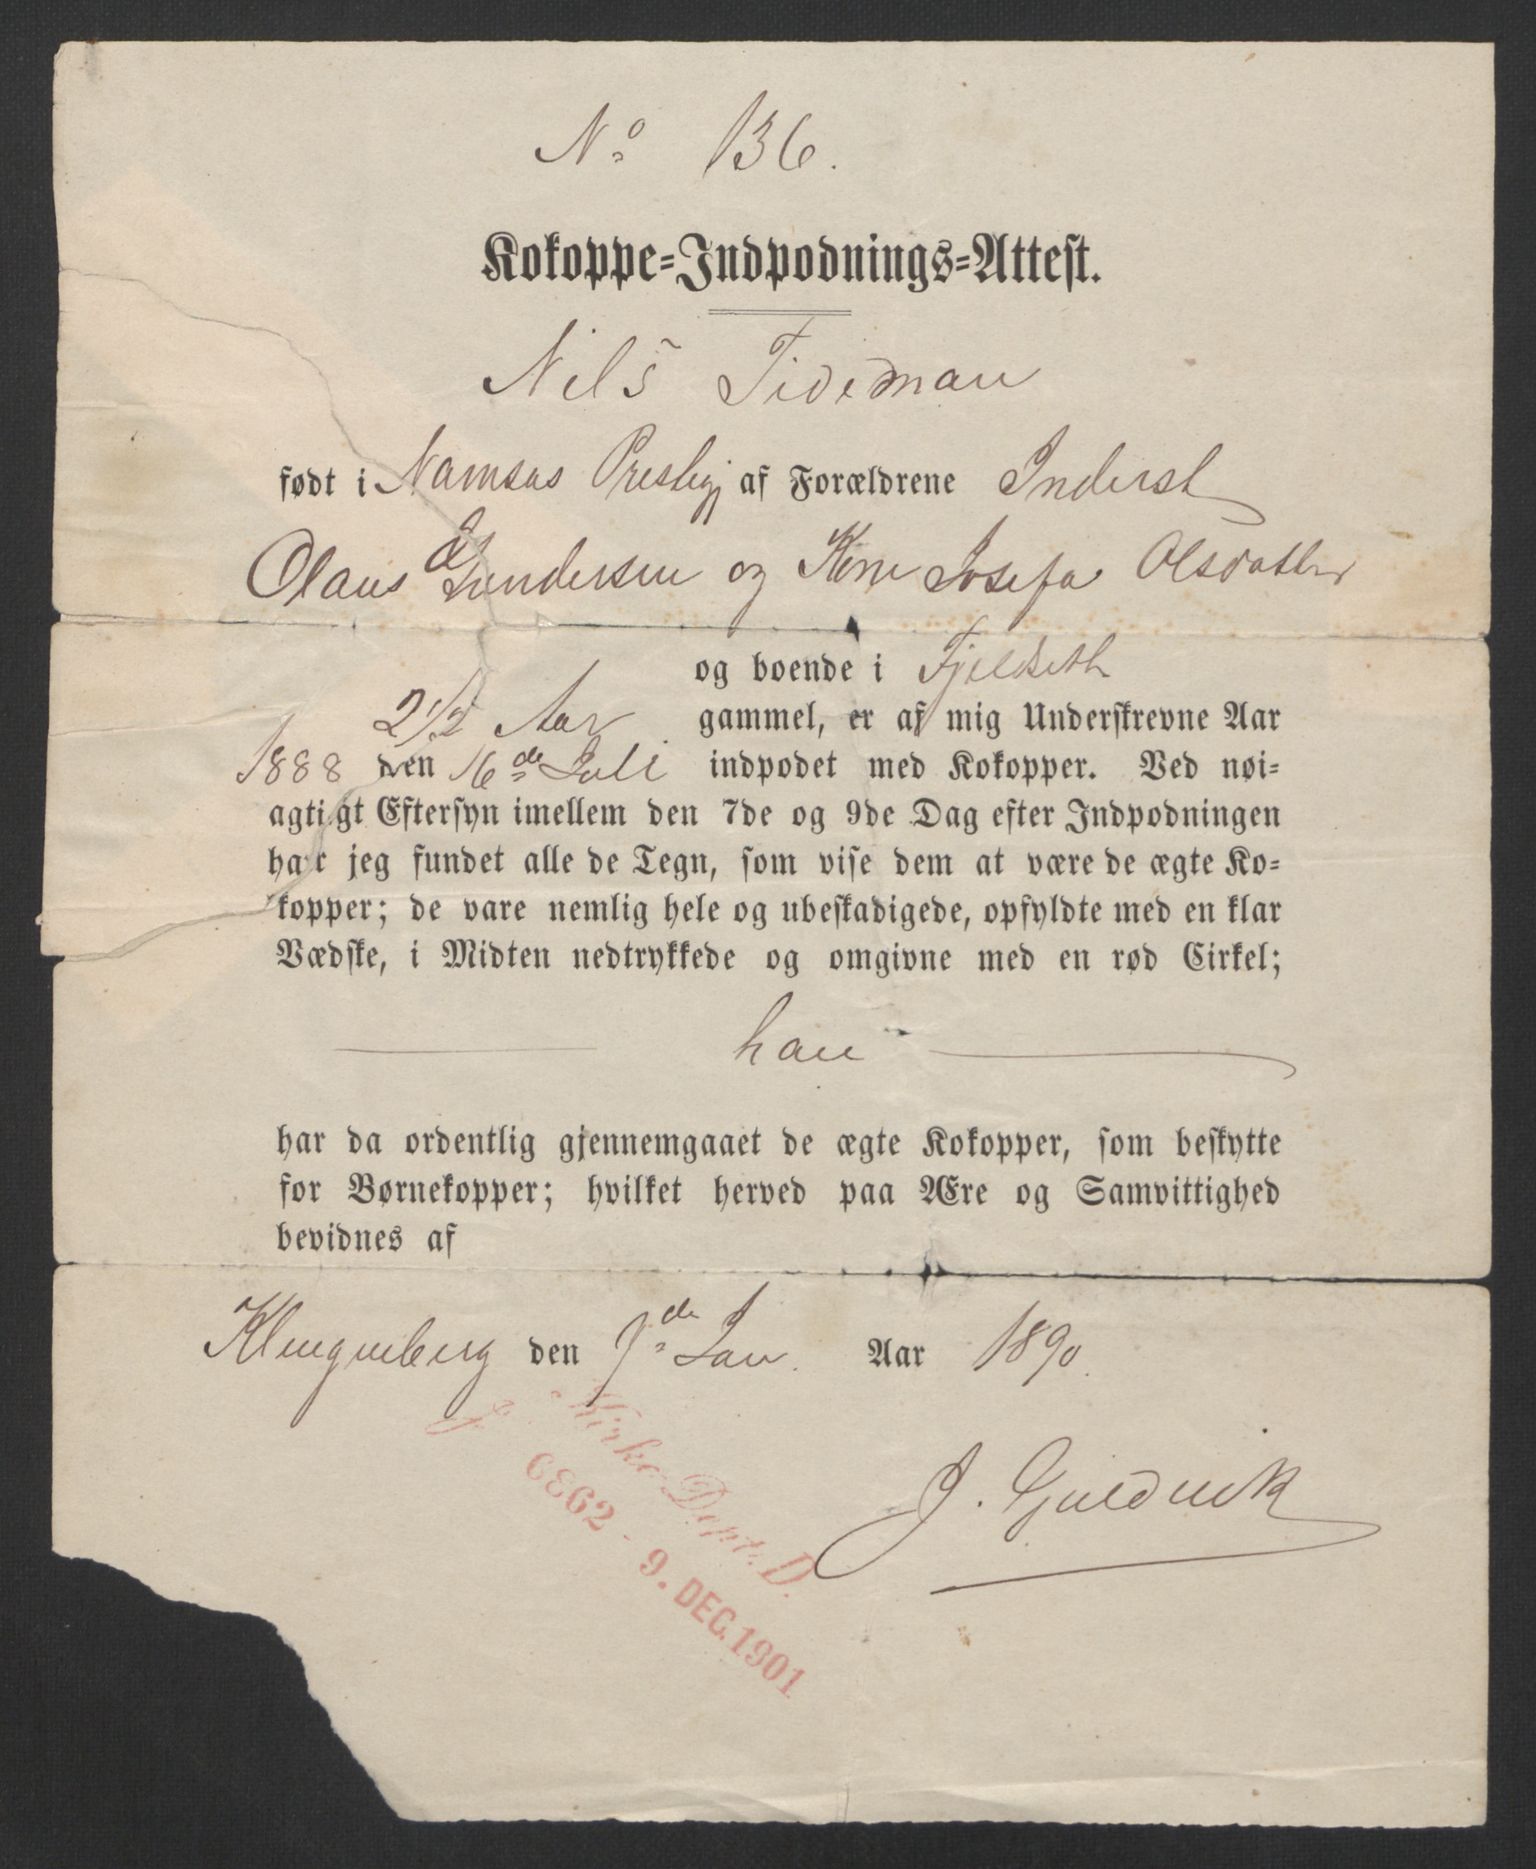 No 136.
Kokoppe-Indpodnings-Attest.
Nils Tideman
født i Namsos Præstegj af Forældrene Inderst
Olaus Gundersen og Kone Josefa Olsdatter
og boende i Fjeldseth
2 1/2 Aar gammel, er af mig Underskrevne Aar
1888 den 16de Juli indpodet med Kokopper. Ved nøi-
agtigt Eftersyn imellem den 7de og 9de Dag efter Indpodningen
har jeg fundet alle de Tegn, som vise dem at være de ægte Ko-
kopper; de vare nemlig hele og ubeskadigede, opfyldte med en klar
Vædske, i Midten nedtrykkede og omgivne med en rød Cirkel;
han
har da ordentlig gjennemgaaet de ægte Kokopper, som beskytte
for Børnekopper; hvilket herved paa Ære og Samvittighed
bevidnes af
Klingenberg den 7de Jan. Aar 1890.
J. Gjeldvik
Kirke-Dept. D.
6862 - 9. DEC. 1901